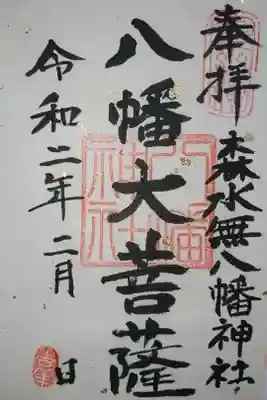 奉拝
森水無八幡神社
八幡大菩薩
八幡神社
令和二年二月 日